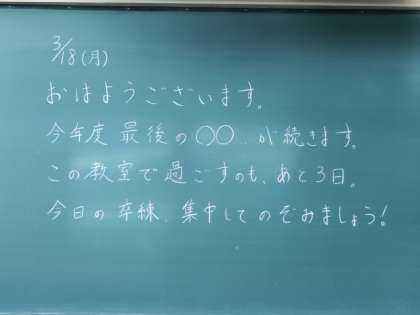 3/18(月)
おはようございます。
今年度 最後の〇〇が続きます。
この教室で過ごすのも、あと3日。
今日の卒練、集中してのぞみましょう!